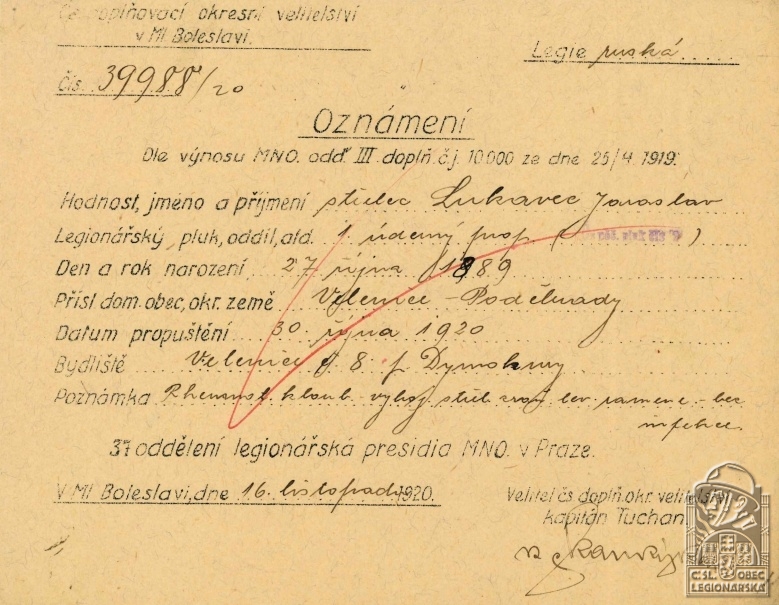 doplňovací okresní velitelství
v Ml. Boleslavi.
Legie ruská
čís. 39988/20
Oznámení
Dle výnosu MNO. odd. III doplň. č.j. 10.000 ze dne 25/4 1919.
Hodnost, jméno a příjmení střelec Lukavec Jaroslav
Legionářský pluk, oddíl, atd. 1 úderný prap. ( )
Den a rok narození 27 října 1889
Přísl. dom. obec, okr. země Velenice - Poděbrady
Datum propuštění 30. října 1920
Bydliště Velenice 8 p. Dymokury
Poznámka kloub. - vyhoj. střel. lev. ramene - bez
infekce.
37 oddělení legionářská presidia MNO. v Praze.
V Ml. Boleslavi, dne 16. listopadu 1920.
Velitel čs. doplň. okr. velitelství
kapitán Tuchan
Č.SL. OBEC
LEGIONÁŘSKÁ